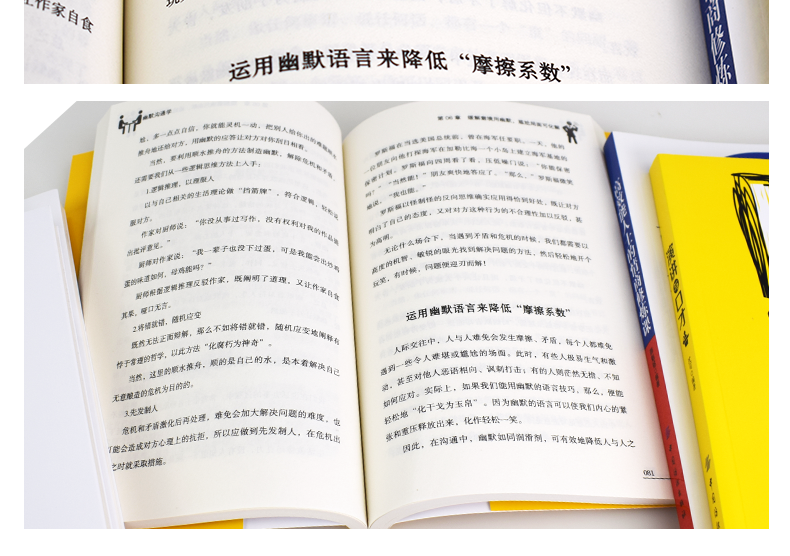 作家自食
运用幽默语言来降低“摩擦系数”
幽默沟通学
慧，多一点点自信，你就能灵机一动，把别人给你出的难题顺水
推舟地还给对方，用幽默的应答让对方对你刮目相看。
当然，要利用顺水推舟的方法制造幽默，解除危机和矛盾，
还需要我们从一些逻辑思维方法上入手：
1.逻辑推理，以理服人
以与自己相关的生活理论做“挡箭牌”，符合逻辑，轻松说
服对方。
作家对厨师说：“你没从事过写作，没有权利对我的作品提
出批评意见。”
厨师对作家说：“我一辈子也没下过蛋，可是我能尝出炒鸡
蛋的味道如何，母鸡能吗？”
厨师根据逻辑推理反驳作家，既阐明了道理，又让作家自食
其果，哑口无言。
2.将错就错，随机应变
既然无法正面辩解，那么不如将错就错，随机应变地阐释有
悖于常理的哲学，以此方法“化腐朽为神奇”。
当然，这里的顺水推舟，顺的是自己的水，是本着解决自己
无意酿造的危机为目的的。
3.先发制人
危机和矛盾激化后再处理，难免会加大解决问题的难度，也
可能会造成对方心理上的抗拒，所以应做到先发制人，在危机出
之时就采取措施。
罗斯福在当选美国总统前，曾在海军任要职。一天，他的
一位朋友向他打探海军在加勒比海一个小岛上建立海军基地的
保密计划。罗斯福向四周看了看，压低嗓门说：“你能保密
吗？”“当然能！”朋友爽快地答应了。“那么，”罗斯福微笑
地说，“我也能。”
罗斯福以怪制怪的反向思维确实应用得恰到好处，既让对方
明白了自己的态度，又对对方这种行为的不合理性加以反驳，甚
为高明。
无论什么场合下，当遇到矛盾和危机的时候，我们都需要以
高度的机智、敏锐的眼光找到解决问题的方法，然后轻松地开个
玩笑，有时候，问题便迎刃而解！
运用幽默语言来降低“摩擦系数”
人际交往中，人与人难免会发生摩擦、矛盾，每个人都难免
遇到一些令人难堪或尴尬的场面。此时，有些人极易生气和激
动，甚至对他人恶语相向、讽刺打击；有的人则茫然无措，不知
如何应对。实际上，如果我们能用幽默的语言技巧，那么，便能
轻松地“化干戈为玉帛”。因为幽默的语言可以使我们内心的紧
张和重压释放出来，化作轻松一笑。
因此，在沟通中，幽默如同润滑剂，可有效地降低人与人之
081